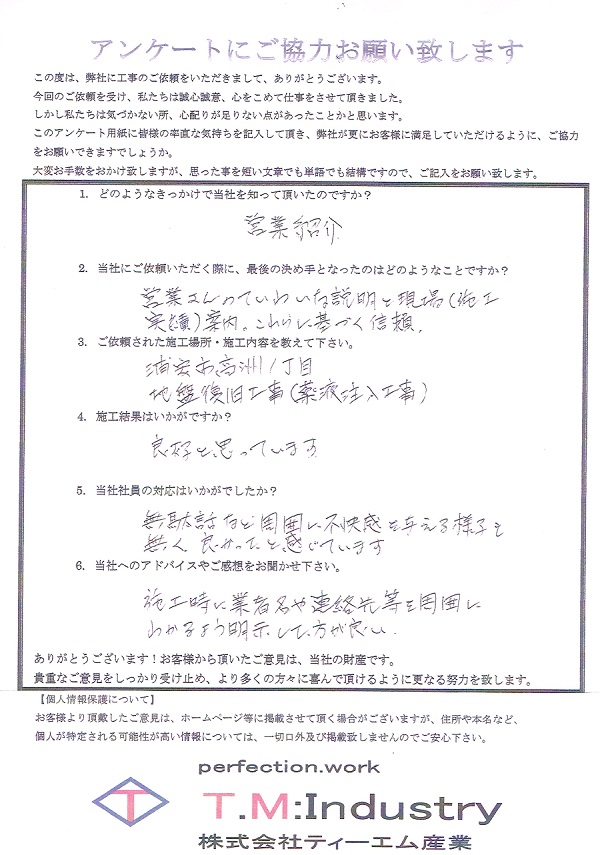 アンケートにご協力お願い致します
この度は、弊社に工事のご依頼をいただきまして、ありがとうございます。
今回のご依頼を受け、私たちは誠心誠意、心をこめて仕事をさせて頂きました。
しかし私たちは気づかない所、心配りが足りない点があったことかと思います。
このアンケート用紙に皆様の率直な気持ちを記入して頂き、弊社が更にお客様に満足していただけるように、ご協力
をお願いできますでしょうか。
大変お手数をおかけ致しますが、思った事を短い文章でも単語でも結構ですので、ご記入をお願い致します。
1. どのようなきっかけで当社を知って頂いたのですか？
営業紹介
2. 当社にご依頼いただく際に、最後の決め手となったのはどのようなことですか？
営業さんのていねいな説明と現場(施工
実績)案内。これらに基づく信頼.
3. ご依頼された施工場所・施工内容を教えて下さい。
浦安市高洲1丁目
地盤復旧工事(薬液注入工事)
4. 施工結果はいかがですか？
良好と思っています
5. 当社社員の対応はいかがでしたか？
無駄話など周囲に不快感を与える様子も
無く良かったと感じています
6. 当社へのアドバイスやご感想をお聞かせ下さい。
施工時に業者名や連絡先等を周囲に
わかるよう明示した方が良い.
ありがとうございます！お客様から頂いたご意見は、当社の財産です。
貴重なご意見をしっかり受け止め、より多くの方々に喜んで頂けるように更なる努力を致します。
【個人情報保護について】
お客様より頂戴したご意見は、ホームページ等に掲載させて頂く場合がございますが、住所や本名など、
個人が特定される可能性が高い情報については、一切口外及び掲載致しませんのでご安心下さい。
perfection.work
T T.M:Industry
株式会社ティーエム産業